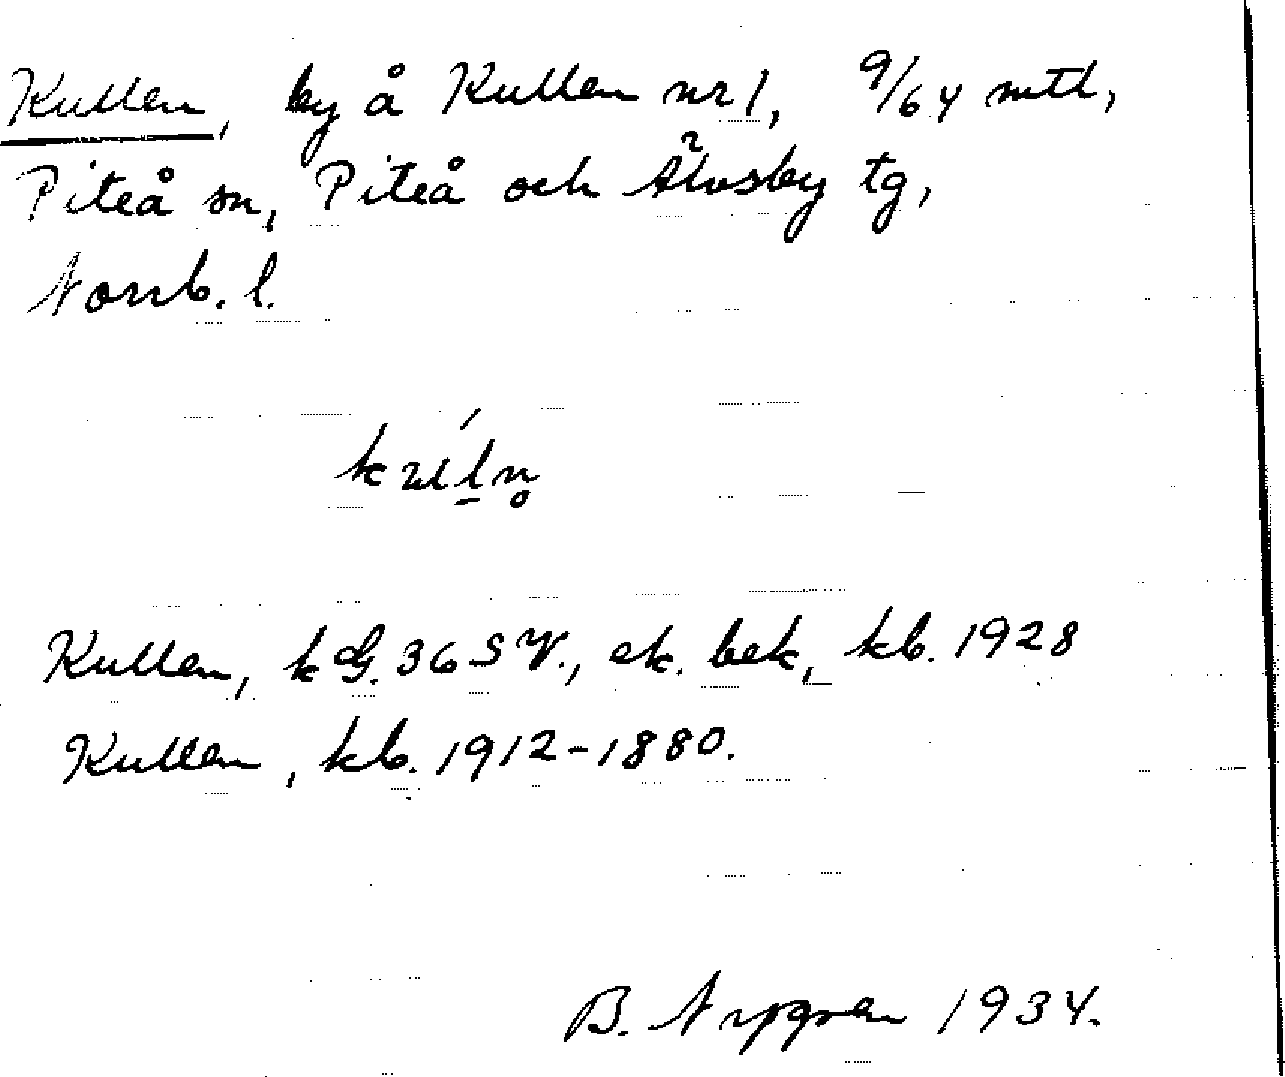 Kullen, by å Kullen nr 1, 9/64 mtl,
Piteå sn, Piteå och Älvsby tg,
Norrb. l.
Kullen, kG. 36 SV., ek. bek, kb. 1928
Kullen, kb. 1912-1880.
B. Nygren 1934.